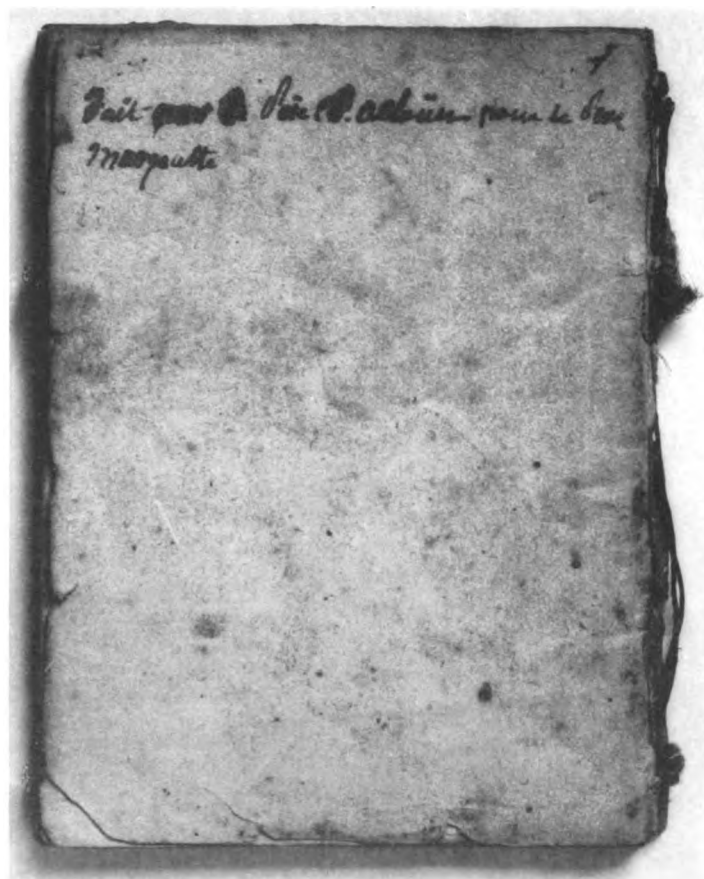 Fait par le Père C. allouez pour le Père
Marquette